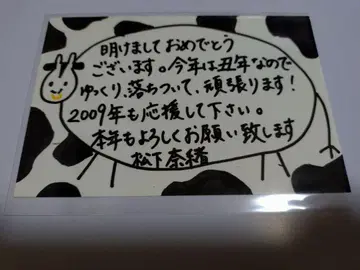 明けましておめでとう
ございます。今年は丑年なので
ゆっくり、落ちついて、頑張ります!
2009年も応援して下さい。
本年もよろしくお願い致します
松下奈緒